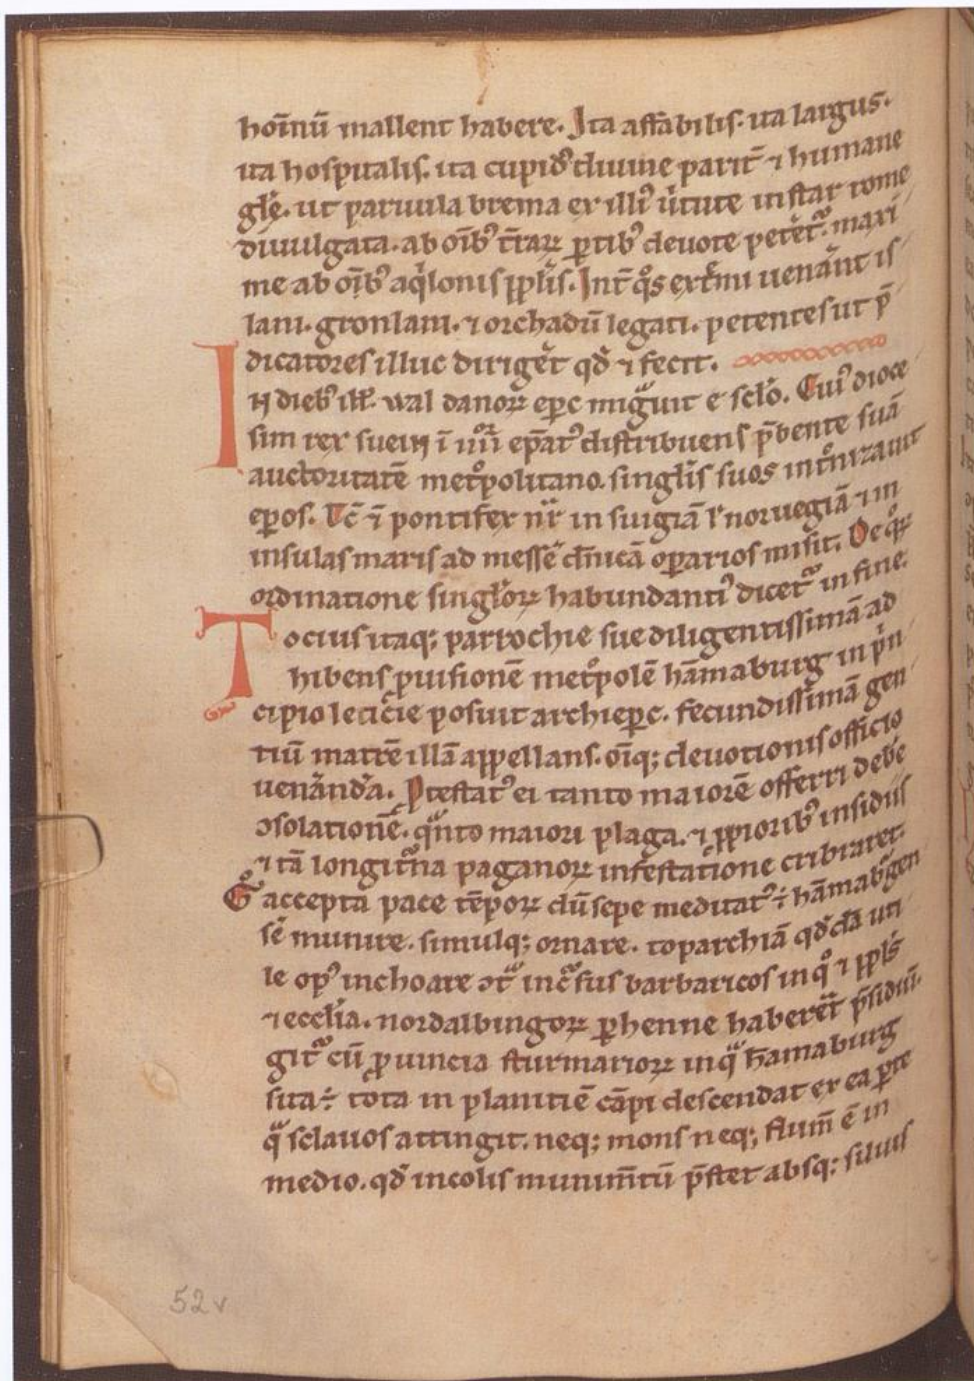 hoīnū mallent habere. Ita affabilis. ita largus.
ita hospitalis. ita cupid᷒ diuine parit̄ ⁊ humane
gl̄e. ut paruula brema ex illi᷒ u̾tute instar rome
diuulgata. ab oīb᷒ t̄raꝝ ꝑtib᷒ deuote petet̄. maxi
me ab oīb᷒ aq̇lonis ppl̄is. Int̄ q̊s ext̄mi uenānt is
lani. gronlani. ⁊ orchadū legati. petentes ut p̄
dicatores illuc dirigēt qđ ⁊ fecit.
IN dieb᷒ ill̄. wal danoꝝ epc migͣuit e sclo̅. Cui᷒ dioce
sim rex suein ī iiii epat᷒ distribuens p̄bente suā
auctoritatē met̊politano. singl̄is suos int̊nizauit
epos. Tc̄ ⁊ pontifex nr̄ in suigiā ł noruegiā ⁊ in
insulas maris ad messē dn̄icā oꝑarios misit. De q̊ꝝ
ordinatione singl̄oꝝ habundanti᷒ dicet̄ in fine.
Tocius itaq; parrochie sue diligentissimā ad
hibens ꝓuisionē met̊polē hām̄aburg in prin
cipio leticie posuit archiepc. fecundissimā gen
tiū matrē illā appellans. oīq; deuotionis officio
uenāndā. Ptestat᷒ ei tanto maiorē offerri debē
ↄsolationē. qͣnto maiori plaga. ⁊ ppiorib᷒ insidiis
⁊ tā longit̄na paganoꝝ infestatione cribraret.
Er̊ accepta pace tēpoꝝ dū sepe meditat᷒ ÷ hām̄aburgen
sē munire. simulq; ornare. toparchiā qđdā uti
le op᷒ inchoare ↄtͣ incͬsus barbaricos in q̊ ⁊ ppl̄s
⁊ eccl̄ia. nordalbingoꝝ ꝑhenne haberēt p̄sidiū.
git̄ cū ꝓuincia sturmarioꝝ in qͣ hamaburg
sita ÷ tota in planitiē cāpi descendat ex ea ꝑte
qͣ sclauos attingit. neq; mons neq; flum̄ ē in
medio. qđ incolis munim̄tū p̄stet absq; siluis
52 v